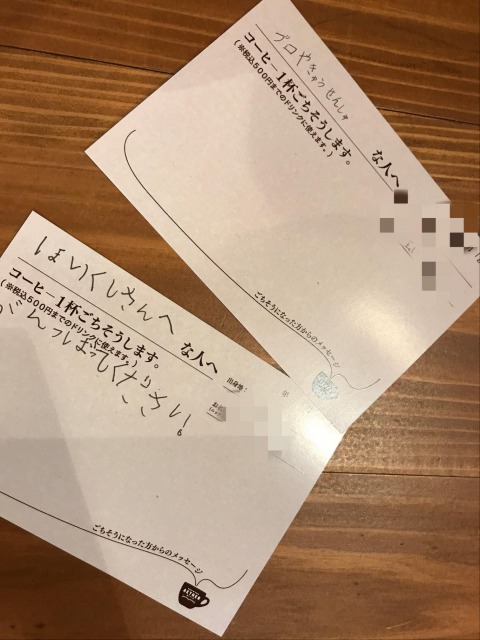 プロやきゅうせんしゅ
な人へ
コーヒー1杯ごちそうします。
(※税込500円までのドリンクに使えます。)
ごちそうになった方からのメッセージ
ほいくしさんへ
な人へ
コーヒー1杯ごちそうします。
(※税込500円までのドリンクに使えます。)
がんばってください。
出身地:
ごちそうになった方からのメッセージ